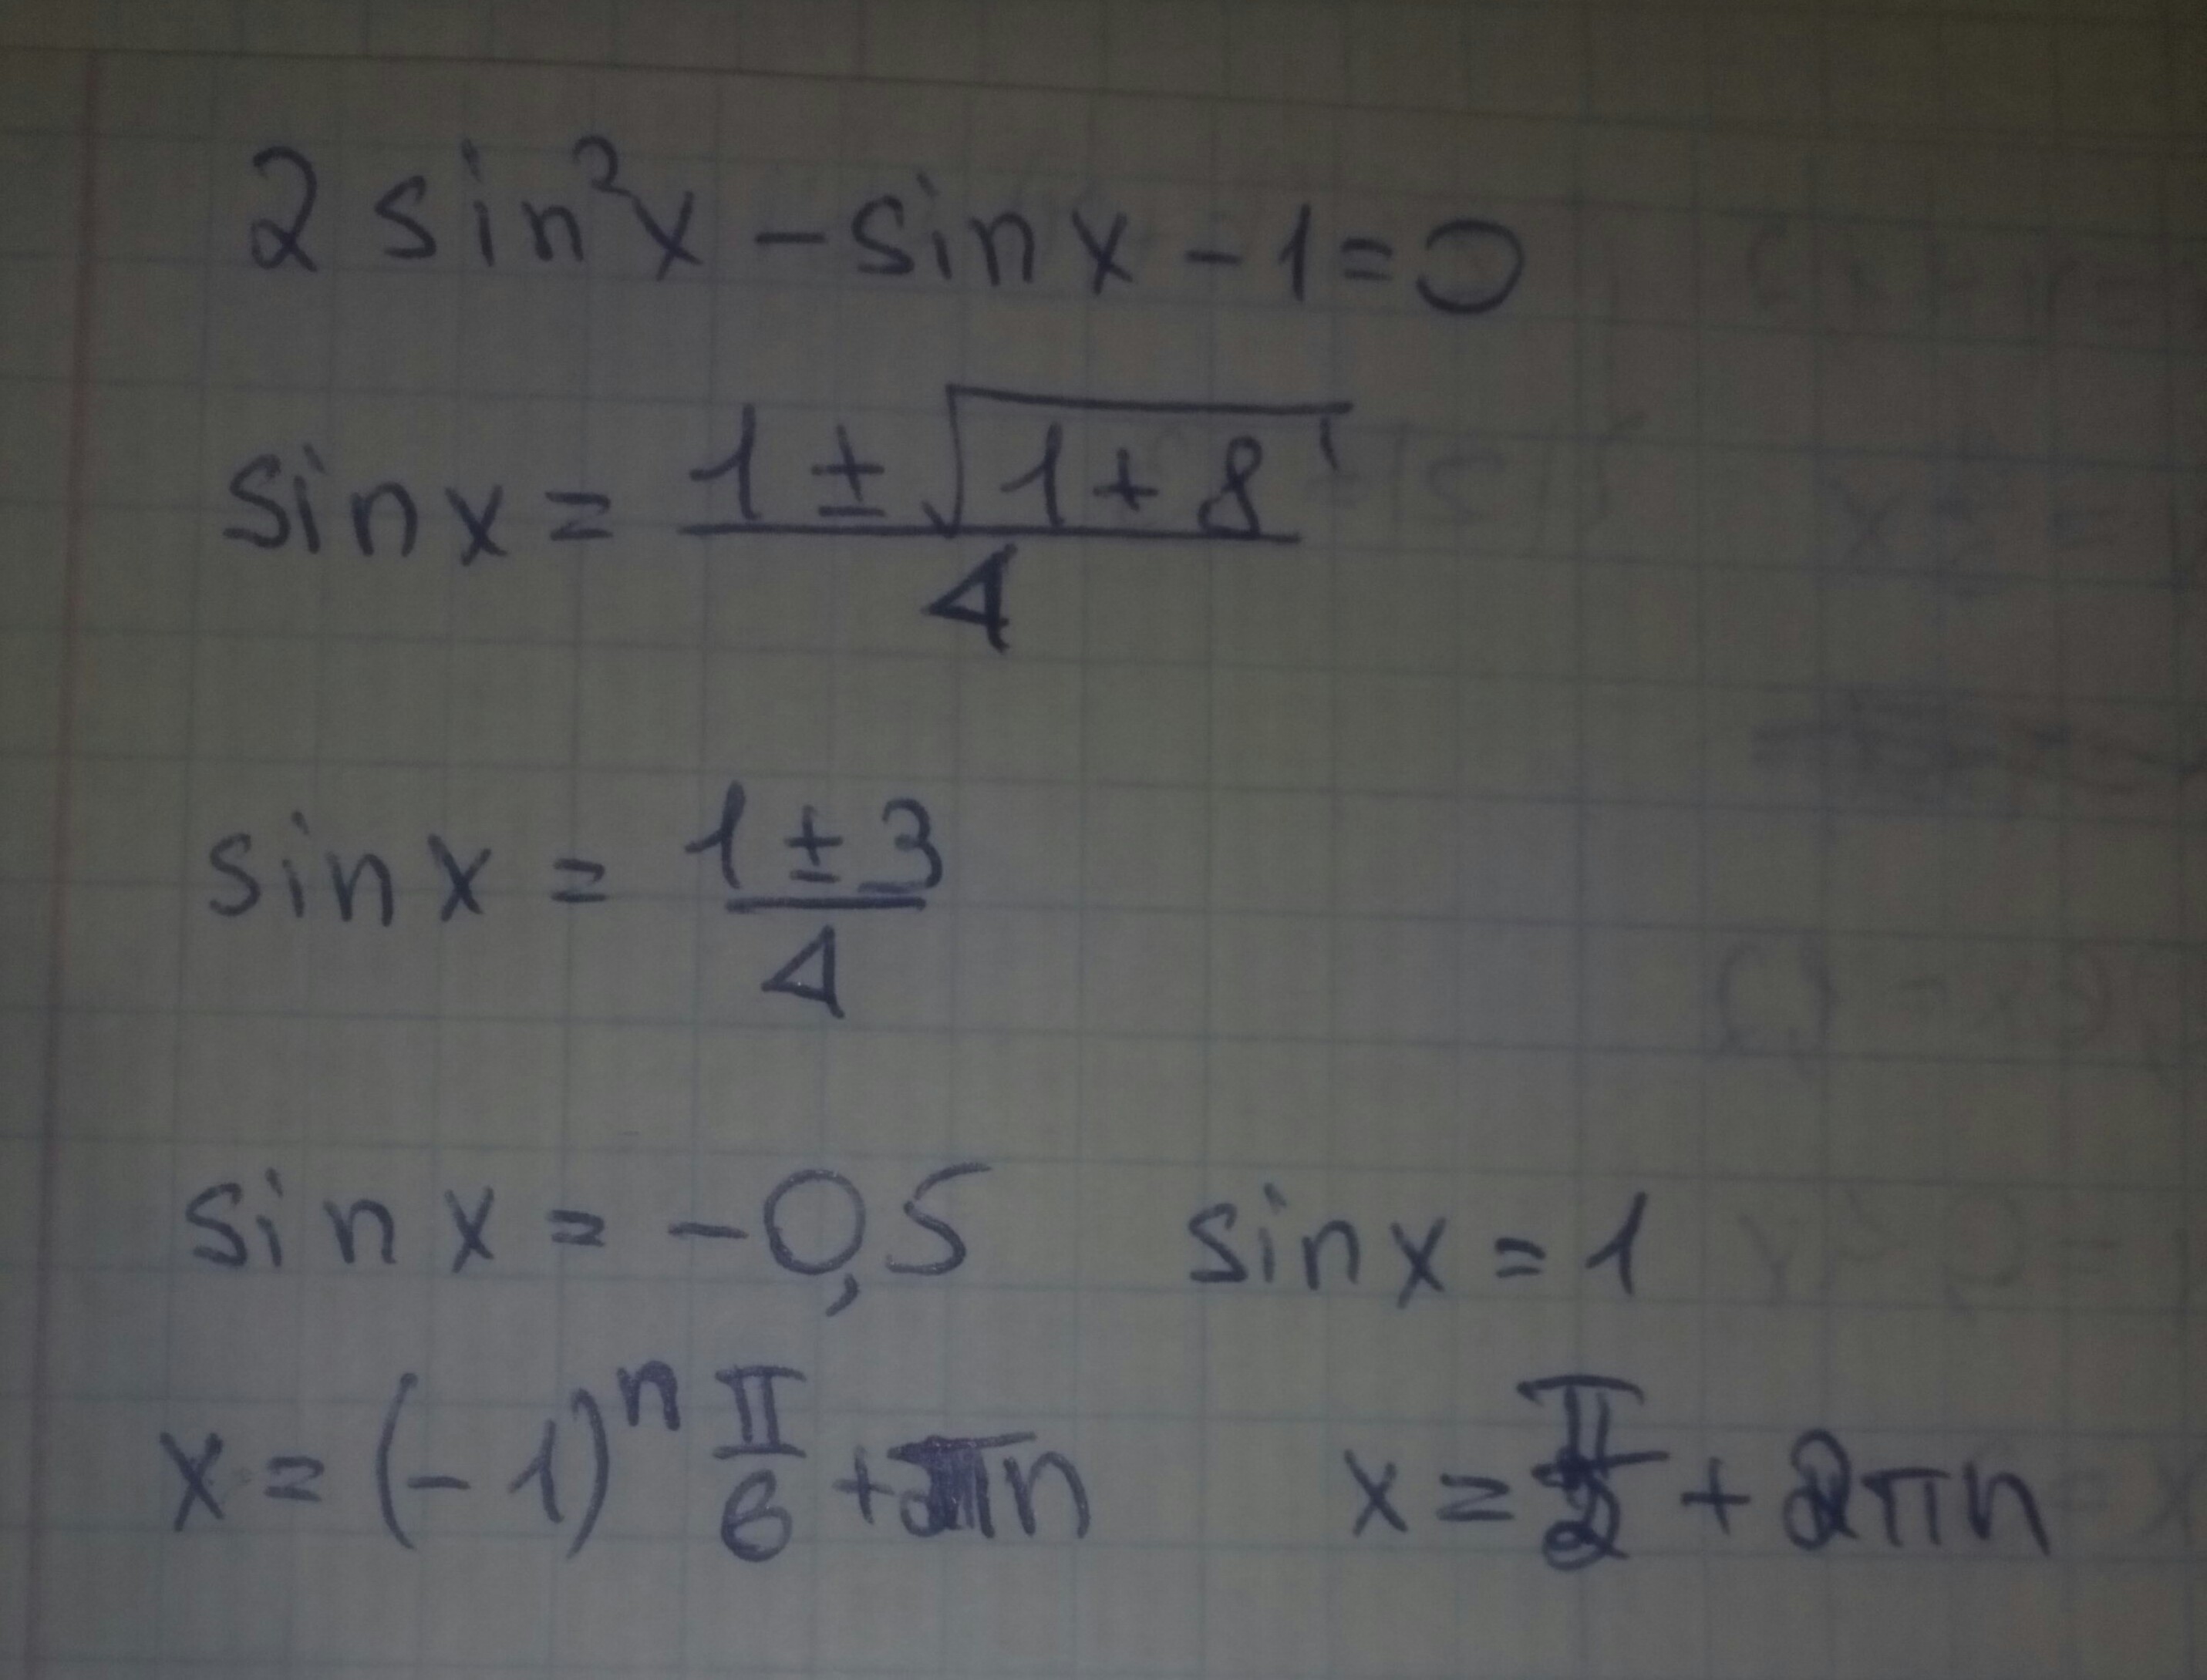 2 sin²x - sin x - 1 = 0
sin x = (1 ± √(1 + 8)) / 4
sin x = (1 ± 3) / 4
sin x = -0,5    sin x = 1
x = (-1)ⁿ π/6 + πn    x = π/2 + 2πn